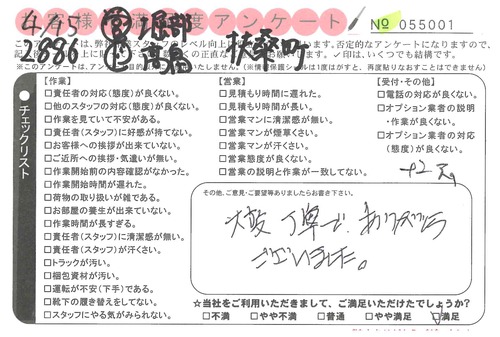 お客様満足度アンケート
№ 055001
4.95 営 堀部 扶桑町
※このアンケートは、アンケート目的以外には使用いたしません。(※情報保護シールは1度はがすと、再度貼りなおすことはできません)
チェックリスト
【作業】
□責任者の対応(態度)が良くない。
□他のスタッフの対応(態度)が良くない。
□作業を見ていて不安がある。
□責任者(スタッフ)に好感が持てない。
□お客様への挨拶が出来ていない。
□ご近所への挨拶・気遣いが無い。
□作業開始前の内容確認がなかった。
□作業開始時間が遅れた。
□荷物の取り扱いが雑である。
□お部屋の養生が出来ていない。
□作業時間が長すぎる。
□責任者(スタッフ)に清潔感が無い。
□責任者(スタッフ)が汗くさい。
□トラックが汚い。
□梱包資材が汚い。
□運転が不安(下手)である。
□靴下の履き替えをしていない。
□スタッフにやる気がみられない。
【営業】
□見積もり時間に遅れた。
□見積もり時間が長い。
□営業マンに清潔感が無い。
□営業マンが煙草くさい。
□営業マンが汗くさい。
□営業態度が良くない。
□営業の説明と作業が一致してない。
【受付・その他】
□電話の対応が良くない。
□オプション業者の説明・作業が良くない。
□オプション業者の対応(態度)が良くない。
その他、ご意見・ご要望等ありましたらお書き下さい。
大変丁寧で、ありがとう
ございました。
☆当社をご利用いただきまして、ご満足いただけたでしょうか?
□不満 □やや不満 □普通 □やや満足 ☑満足